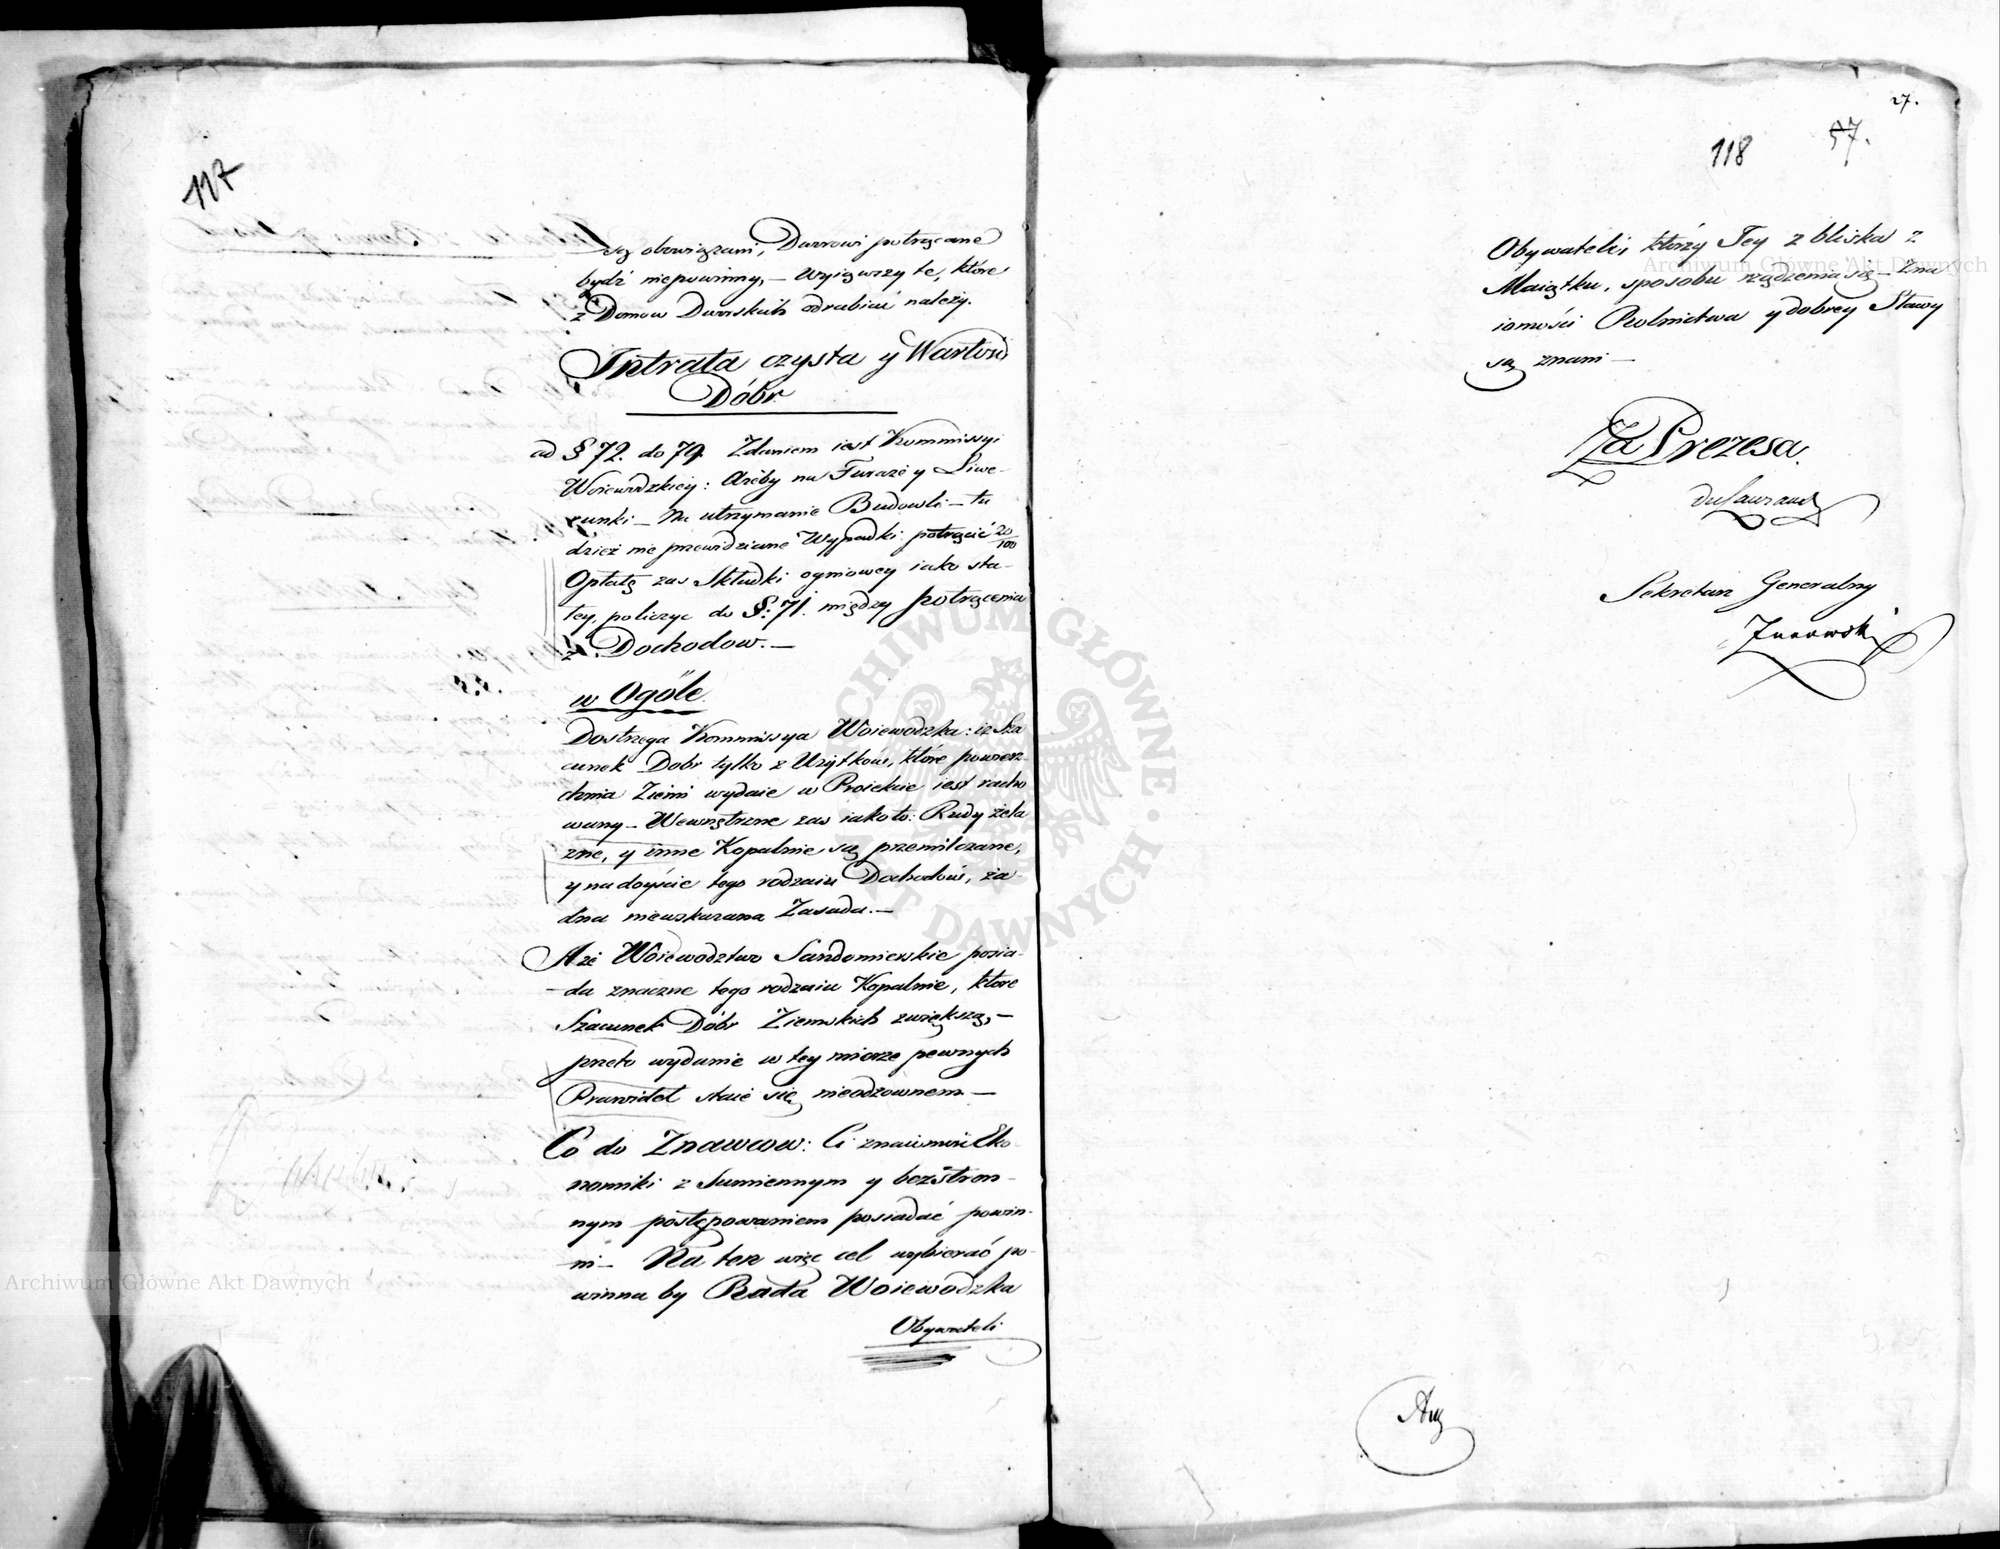 117
są obowiązani, Dworowi potrącane
bydź niepowinny, – wyiąwszy te, które
z Domow Dworskich odrabiać należy.
Intrata czysta y Wartość
Dóbr
od § 72. do 79. Zdaniem iest Kommissyi
Woiewodzkiey: Ażeby na Furaże y Liwe-
runki – Na utrzymanie Budowli – tu
dzież nie przewidziane Wypadki potrącić 20/100
Opłatę zaś Składki ogniowey iako sta-
łey, policzyć do §: 71. między potrącenia
z Dochodow. –
w Ogóle
Dostrzega Kommissya Woiewodzka: iż Sza
cunek Dobr tylko z Użytków, które powierz-
chnia Ziemi wydaie w Proiekcie iest racho
wany – Wewnętrzne zaś iako to: Rudy żela
zne, y inne Kopalnie są przemilczane,
y na doyście tego rodzaiu Dochodów, ża-
dna niewskazana Zasada. –
A że Woiewodztwo Sandomierskie posia-
da znaczne tego rodzaiu Kopalnie, które
Szacunek Dóbr Ziemskich zwiększą, –
przeto wydanie w tey mierze pewnych
Prawideł staie się nieodzownem –
Co do Znawcow: Ci znaiomość Eko-
nomiki z Sumiennym y bezstron-
nym postępowaniem posiadać powin-
ni – Na ten więc cel wybierać po-
winna by Rada Woiewodzka
Obywateli
27.
57.
118
Obywateli, którzy Jey z bliska z
Maiątku, sposobu rządzenia się – Zna
iomości Rolnictwa y dobrey Sławy
są znani –
Za Prezesa.
Sekretarz Generalny
ARCHIWUM GŁÓWNE AKT DAWNYCH
Archiwum Główne Akt Dawnych
Archiwum Główne Akt Dawnych